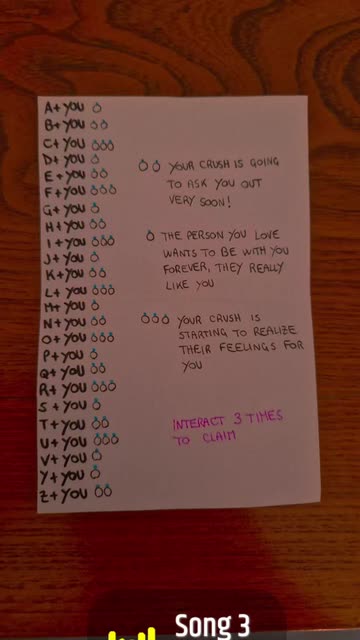 A+YOU 💍
B+YOU 💍💍
C+YOU 💍💍💍
D+YOU 💍
E+YOU 💍💍
F+YOU 💍💍💍
G+YOU 💍
H+YOU 💍💍
I+YOU 💍💍💍
J+YOU 💍
K+YOU 💍💍
L+YOU 💍💍💍
M+YOU 💍
N+YOU 💍💍
O+YOU 💍💍💍
P+YOU 💍
Q+YOU 💍💍
R+YOU 💍💍💍
S+YOU 💍
T+YOU 💍💍
U+YOU 💍💍💍
V+YOU 💍
Y+YOU 💍
Z+YOU 💍💍
💍💍 YOUR CRUSH IS GOING
TO ASK YOU OUT
VERY SOON!
💍 THE PERSON YOU LOVE
WANTS TO BE WITH YOU
FOREVER, THEY REALLY
LIKE YOU
💍💍💍 YOUR CRUSH IS
STARTING TO REALIZE
THEIR FEELINGS FOR
YOU
INTERACT 3 TIMES
TO CLAIM
Song 3